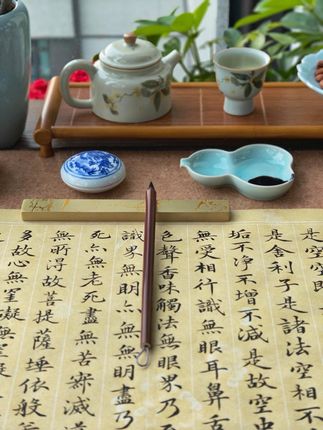 是空空即是
是舍利子是諸法空相
垢不淨不增不減是故空中
無受相行識無眼耳鼻舌
色聲香味觸法無眼界乃
識界無明亦無無明盡
死亦無老死盡無苦寂滅
無所得故菩提薩埵依般
多故心無罣礙無